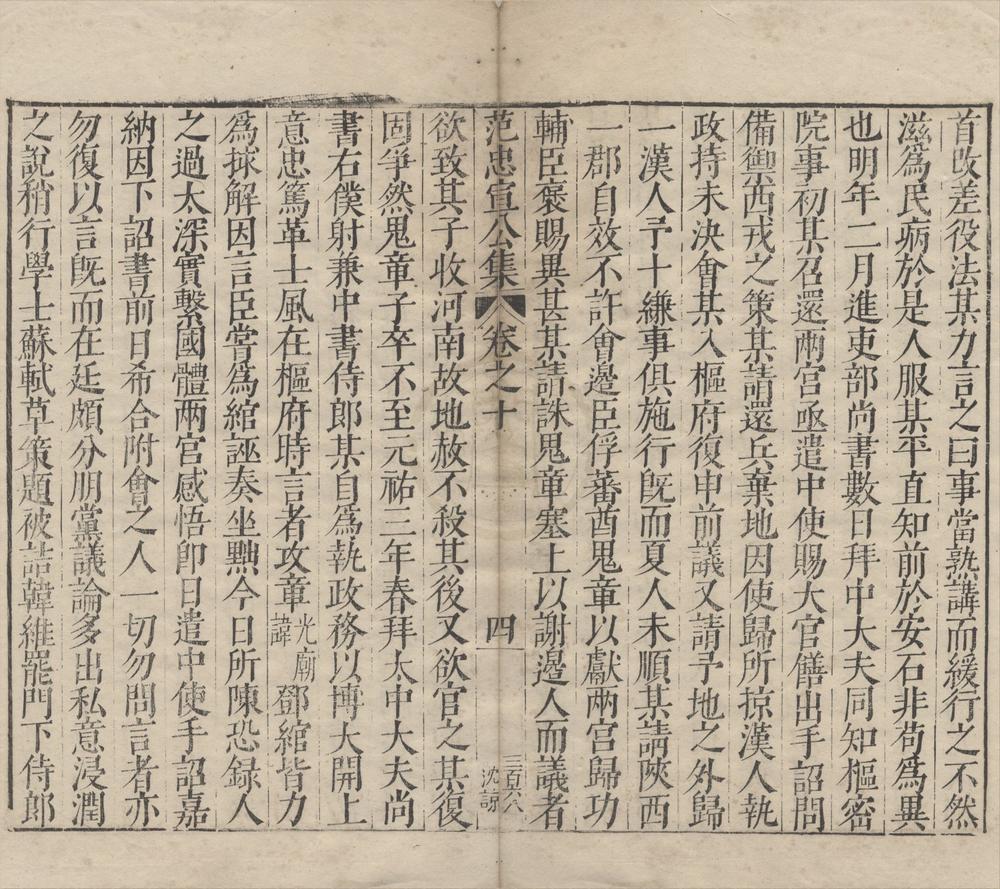 首改差役法某力言之曰事當熟講而緩行之不然
滋爲民病於是人服某平直知前於安石非苟爲異
也明年二月進吏部尚書數日拜中大夫同知樞密
院事初某召還兩宮亟遣中使賜大官饍出手詔問
備禦西戎之策某請還兵棄地因使歸所掠漢人執
政持未決會某入樞府復申前議又請予地之外歸
一漢人予十縑事俱施行旣而夏人未順某請陜西
一郡自效不許會邊臣俘蕃酋鬼童以獻兩宮歸功
輔臣褒賜異甚某請誅鬼童塞上以謝邊人而議者
范忠宣公集 卷之十 四 三百六八 沈諒
欲致其子收河南故地赦不殺其後又欲官之某復
固爭然鬼童子卒不至元祐三年春拜太中大夫尚
書右僕射兼中書侍郎某自爲執政務以博大開上
意忠篤革士風在樞府時言者攻章光廟諱鄧綰皆力
爲捄解因言臣嘗爲綰誣奏坐黜今日所陳恐録人
之過太深實繫國體兩宮感悟卽日遣中使手詔嘉
納因下詔書前日希合附會之人一切勿問言者亦
勿復以言旣而在廷頗分朋黨議論多出私意浸潤
之說稍行學士蘇軾草策題被詰韓維罷門下侍郎